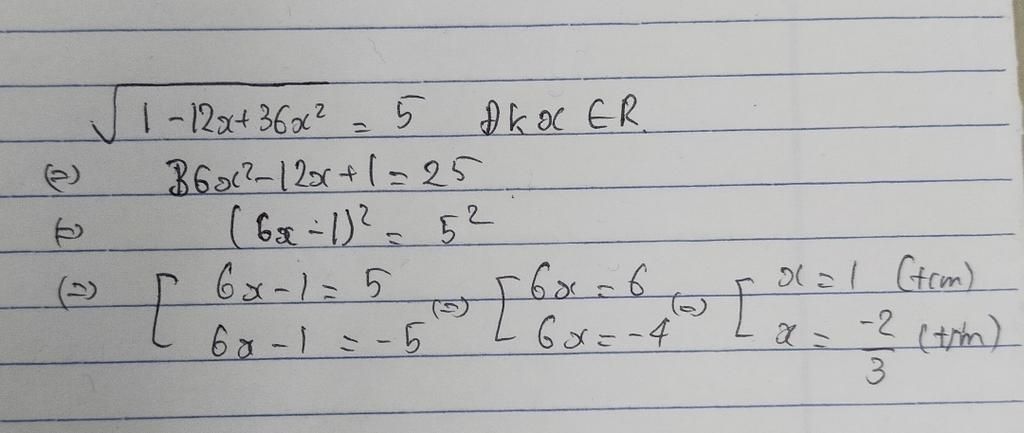 √(1-12x+36x²) = 5 Đk x ∈ R
⇔ 36x²-12x+1 = 25
⇔ (6x-1)² = 5²
⇔ [ 6x-1 = 5 ⇔ [ 6x = 6 ⇔ [ x = 1 (tm)
6x-1 = -5 6x = -4 x = -2/3 (tm)